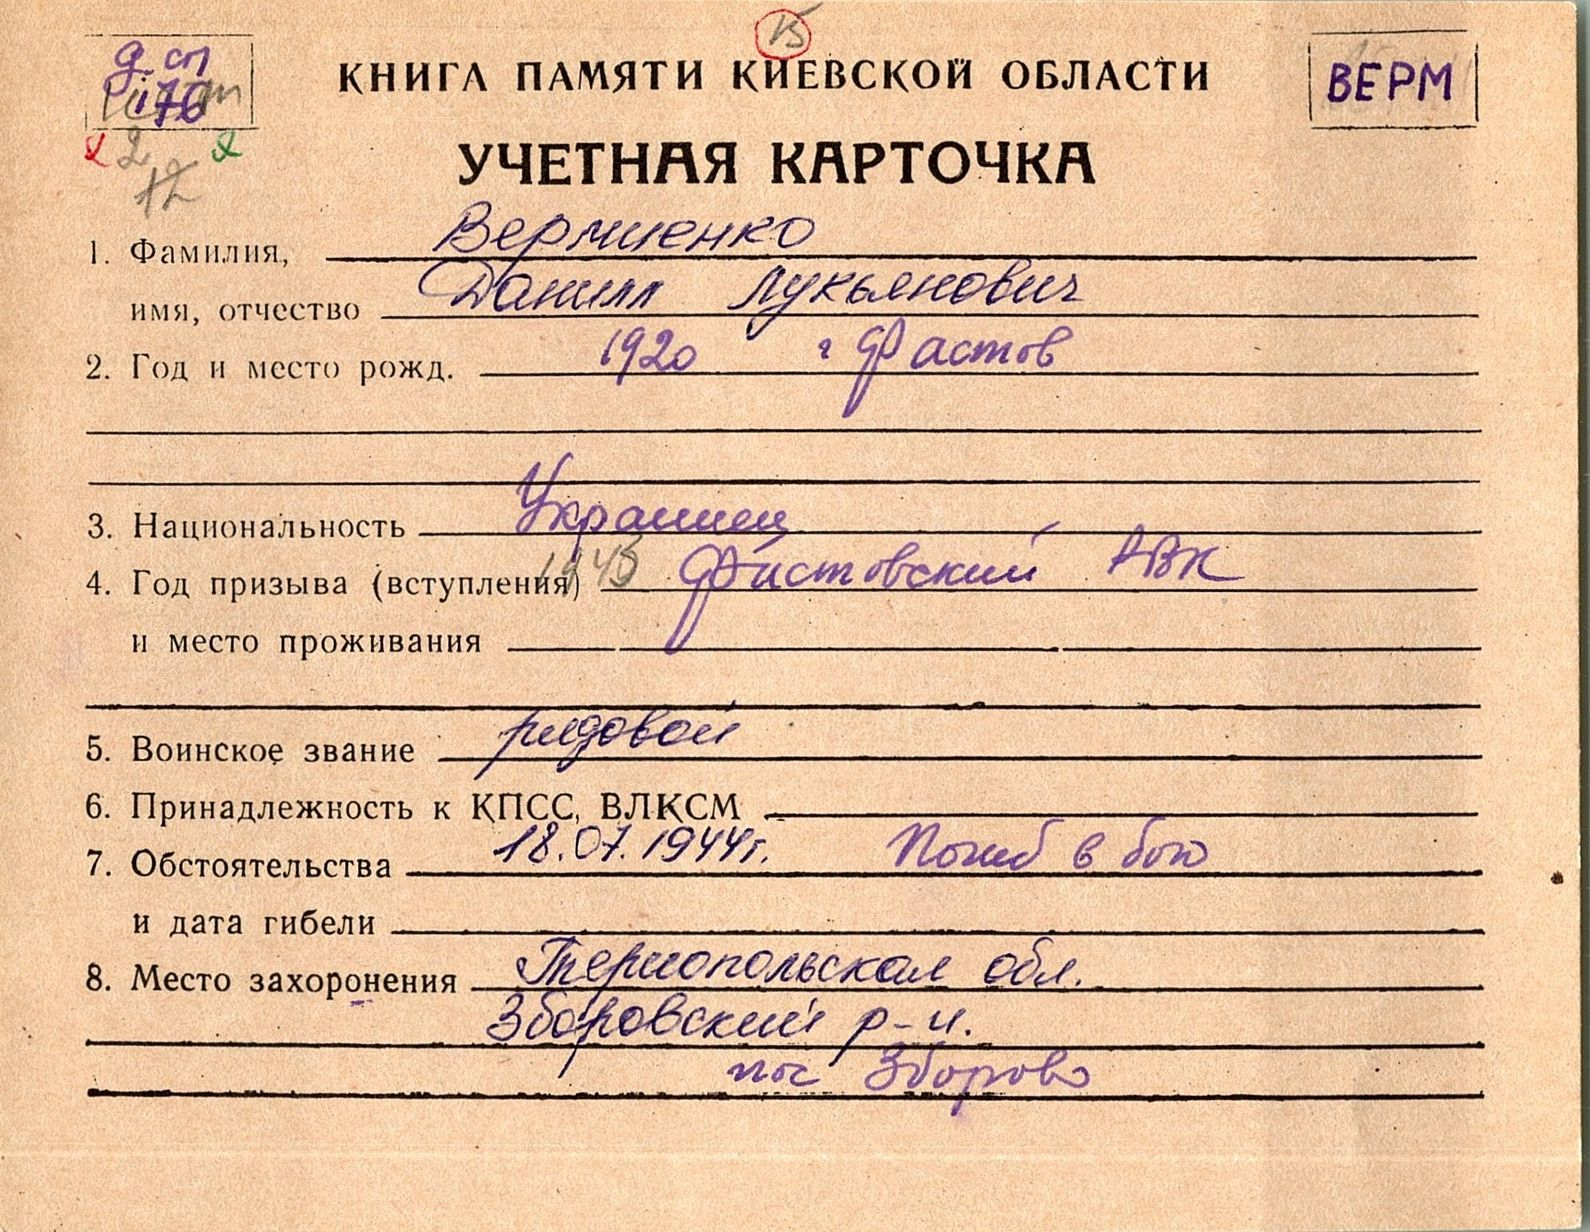 15
д. сп
176
ВЕРМ
КНИГА ПАМЯТИ КИЕВСКОЙ ОБЛАСТИ
2
12
УЧЕТНАЯ КАРТОЧКА
1. Фамилия, Вермиенко
имя, отчество Данилл Лукьянович
2. Год и место рожд. 1920 г Фастов
3. Национальность Украинец
4. Год призыва (вступления) 1943 Фастовский РВК
и место проживания
5. Воинское звание рядовой
6. Принадлежность к КПСС, ВЛКСМ
7. Обстоятельства 18.07.1944г. Погиб в бою
и дата гибели
8. Место захоронения Тернопольская обл.
Зборовский р-н.
пос Зборов